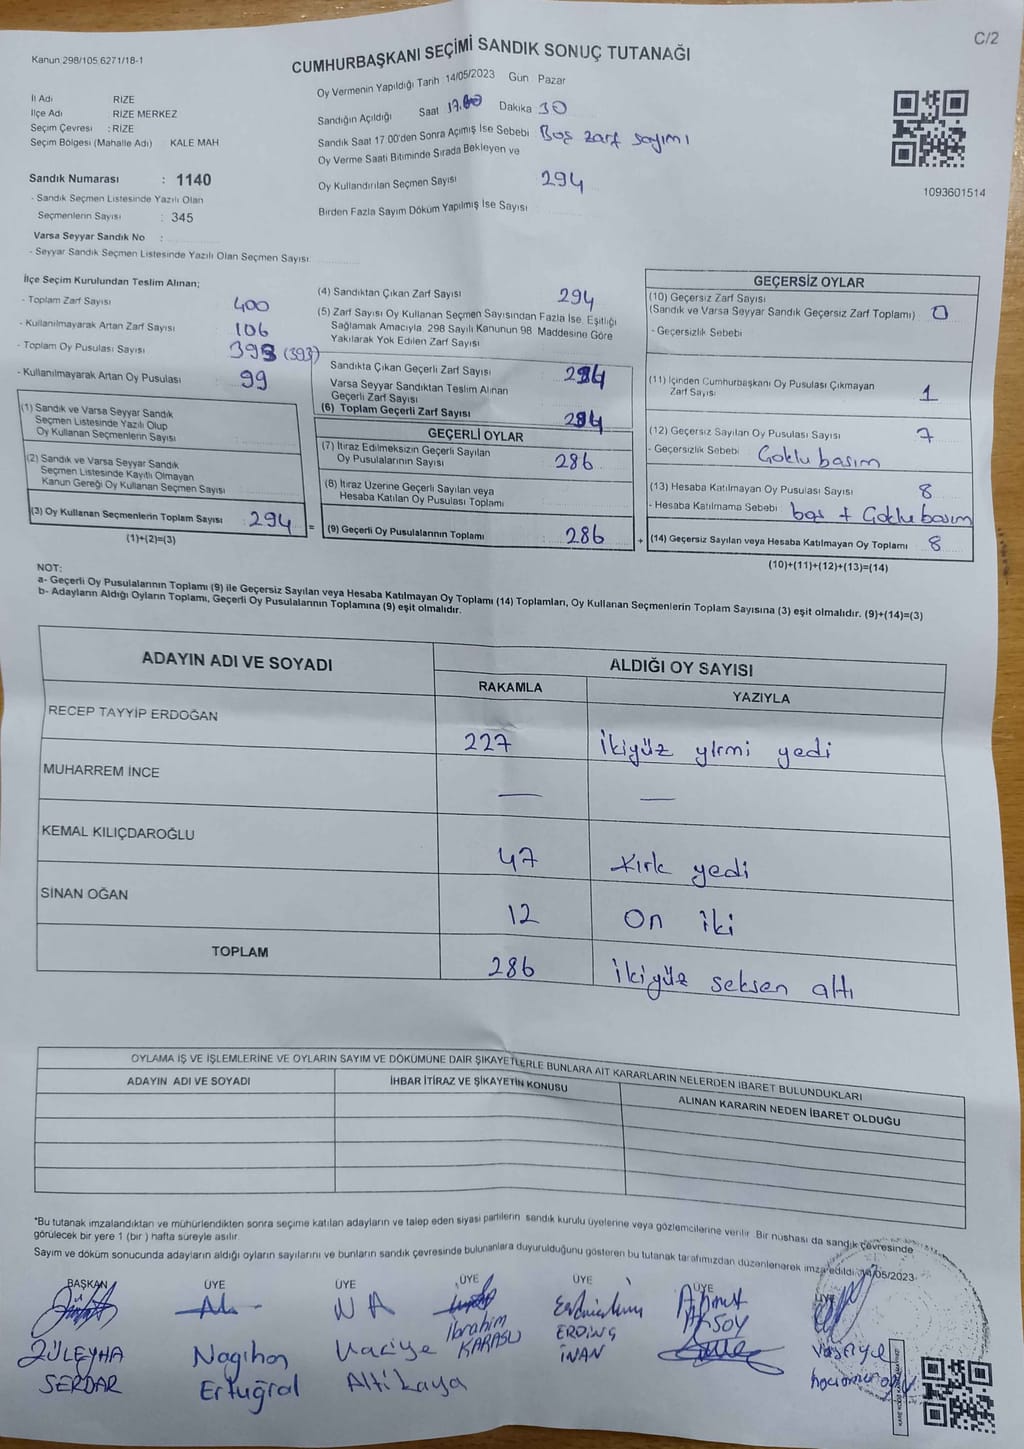 C/2
Kanun 298/105 6271/18-1
CUMHURBAŞKANI SEÇİMİ SANDIK SONUÇ TUTANAĞI
Oy Vermenin Yapıldığı Tarih 14/05/2023 Gün Pazar
İl Adı RİZE
İlçe Adı RİZE MERKEZ
Seçim Çevresi : RİZE
Seçim Bölgesi (Mahalle Adı) KALE MAH
Sandığın Açıldığı Saat 17.00 Dakika 30
Sandık Saat 17 00'den Sonra Açımış İse Sebebi Boş zarf sayımı
Oy Verme Saati Bitiminde Sırada Bekleyen ve
Oy Kullandırılan Seçmen Sayısı 294
Birden Fazla Sayım Döküm Yapılmış İse Sayısı
1093601514
Sandık Numarası : 1140
- Sandık Seçmen Listesinde Yazılı Olan
Seçmenlerin Sayısı : 345
Varsa Seyyar Sandık No :
- Seyyar Sandık Seçmen Listesinde Yazılı Olan Seçmen Sayısı:
İlçe Seçim Kurulundan Teslim Alınan;
- Toplam Zarf Sayısı 400
- Kullanılmayarak Artan Zarf Sayısı 106
- Toplam Oy Pusulası Sayısı 393 (393)
- Kullanılmayarak Artan Oy Pusulası 99
(1) Sandık ve Varsa Seyyar Sandık
Seçmen Listesinde Yazılı Olup
Oy Kullanan Seçmenlerin Sayısı
(2) Sandık ve Varsa Seyyar Sandık
Seçmen Listesinde Kayıtlı Olmayan
Kanun Gereği Oy Kullanan Seçmen Sayısı
(3) Oy Kullanan Seçmenlerin Toplam Sayısı 294 =
(1)+(2)=(3)
(4) Sandıktan Çıkan Zarf Sayısı 294
(5) Zarf Sayısı Oy Kullanan Seçmen Sayısından Fazla İse, Eşitliği
Sağlamak Amacıyla, 298 Sayılı Kanunun 98 Maddesine Göre
Yakılarak Yok Edilen Zarf Sayısı
Sandıkta Çıkan Geçerli Zarf Sayısı 294
Varsa Seyyar Sandıktan Teslim Alınan
Geçerli Zarf Sayısı
(6) Toplam Geçerli Zarf Sayısı 294
GEÇERLİ OYLAR
(7) İtiraz Edilmeksizin Geçerli Sayılan
Oy Pusulalarının Sayısı 286
(8) İtiraz Üzerine Geçerli Sayılan veya
Hesaba Katılan Oy Pusulası Toplamı
(9) Geçerli Oy Pusulalarının Toplamı 286 +
GEÇERSİZ OYLAR
(10) Geçersiz Zarf Sayısı
(Sandık ve Varsa Seyyar Sandık Geçersiz Zarf Toplamı) 0
- Geçersizlik Sebebi
(11) İçinden Cumhurbaşkanı Oy Pusulası Çıkmayan
Zarf Sayısı 1
(12) Geçersiz Sayılan Oy Pusulası Sayısı 7
- Geçersizlik Sebebi Çoklu basım
(13) Hesaba Katılmayan Oy Pusulası Sayısı 8
- Hesaba Katılmama Sebebi boş + Çoklu basım
(14) Geçersiz Sayılan veya Hesaba Katılmayan Oy Toplamı 8
(10)+(11)+(12)+(13)=(14)
NOT:
a- Geçerli Oy Pusulalarının Toplamı (9) ile Geçersiz Sayılan veya Hesaba Katılmayan Oy Toplamı (14) Toplamları, Oy Kullanan Seçmenlerin Toplam Sayısına (3) eşit olmalıdır. (9)+(14)=(3)
b- Adayların Aldığı Oyların Toplamı, Geçerli Oy Pusulalarının Toplamına (9) eşit olmalıdır.
ADAYIN ADI VE SOYADI ALDIĞI OY SAYISI
RAKAMLA YAZIYLA
RECEP TAYYİP ERDOĞAN 227 İkiyüz yirmi yedi
MUHARREM İNCE — —
KEMAL KILIÇDAROĞLU 47 Kırk yedi
SİNAN OĞAN 12 On iki
TOPLAM 286 İkiyüz seksen altı
OYLAMA İŞ VE İŞLEMLERİNE VE OYLARIN SAYIM VE DÖKÜMÜNE DAİR ŞİKAYETLERLE BUNLARA AİT KARARLARIN NELERDEN İBARET BULUNDUKLARI
ADAYIN ADI VE SOYADI İHBAR İTİRAZ VE ŞİKAYETİN KONUSU ALINAN KARARIN NEDEN İBARET OLDUĞU
*Bu tutanak imzalandıktan ve mühürlendikten sonra seçime katılan adayların ve talep eden siyasi partilerin sandık kurulu üyelerine veya gözlemcilerine verilir. Bir nüshası da sandık çevresinde
görülecek bir yere 1 (bir ) hafta süreyle asılır.
Sayım ve döküm sonucunda adayların aldığı oyların sayılarını ve bunların sandık çevresinde bulunanlara duyurulduğunu gösteren bu tutanak tarafımızdan düzenlenerek imza edildi. 14/05/2023
BAŞKAN ÜYE ÜYE ÜYE ÜYE ÜYE ÜYE
ZÜLEYHA SERDAR
Nagihan Ertuğral
Haciye Altikaya
İbrahim KARASU
ERDİNÇ İNAN
Ahmet AKSOY